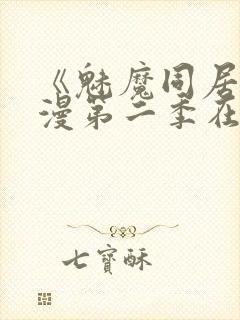 《魅魔同居
漫第二季在
七寶酥